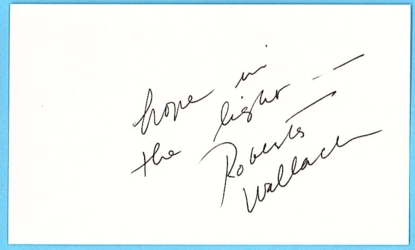 hope in
the light --
Roberta
Wallach